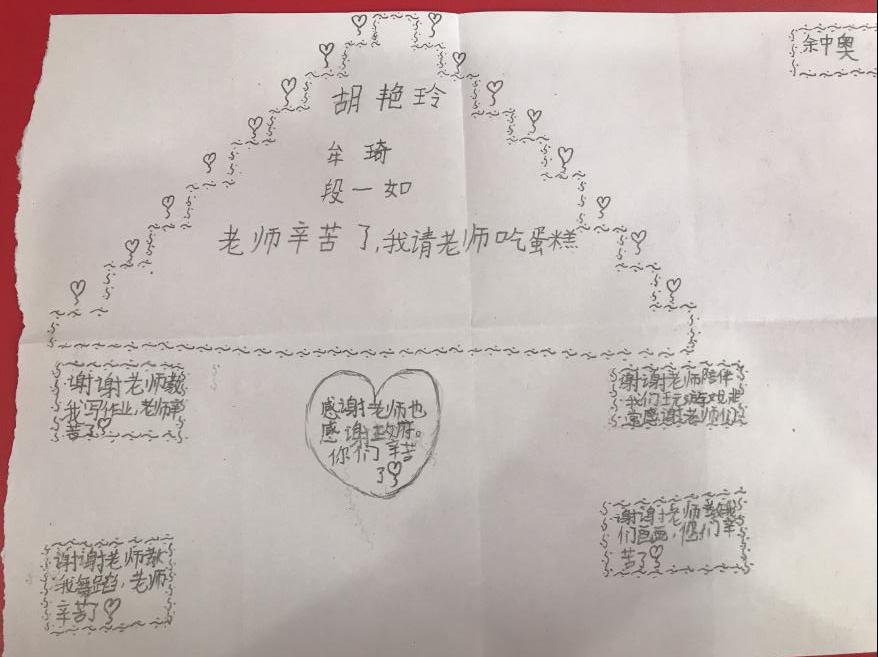 余中奥
胡艳玲
牟琦
段一如
老师辛苦了,我请老师吃蛋糕
谢谢老师教
我写作业,老师辛
苦了
感谢老师也
感谢政府。
你们辛苦
了
谢谢老师陪伴
我们玩游戏,非
常感谢老师们
谢谢老师教我
们画画,你们辛
苦了
谢谢老师教
我舞蹈,老师
辛苦了